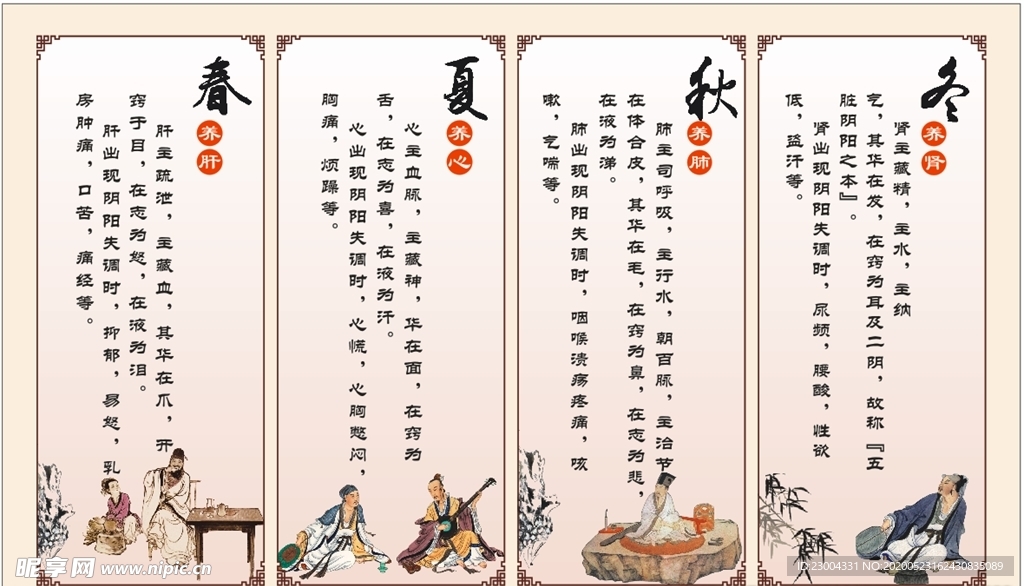 春
养肝
肝主疏泄，主藏血，其华在爪，开
窍于目，在志为怒，在液为泪。
肝出现阴阳失调时，抑郁，易怒，乳
房肿痛，口苦，痛经等。
夏
养心
心主血脉，主藏神，华在面，在窍为
舌，在志为喜，在液为汗。
心出现阴阳失调时，心慌，心胸憋闷，
胸痛，烦躁等。
秋
养肺
肺主司呼吸，主行水，朝百脉，主治节
在体合皮，其华在毛，在窍为鼻，在志为悲，
在液为涕。
肺出现阴阳失调时，咽喉溃疡疼痛，咳
嗽，气喘等。
冬
养肾
肾主藏精，主水，主纳
气，其华在发，在窍为耳及二阴，故称『五
脏阴阳之本』。
肾出现阴阳失调时，尿频，腰酸，性欲
低，盗汗等。
昵享网 www.nipic.cn
ID:23004331 NO:20200523162430835089